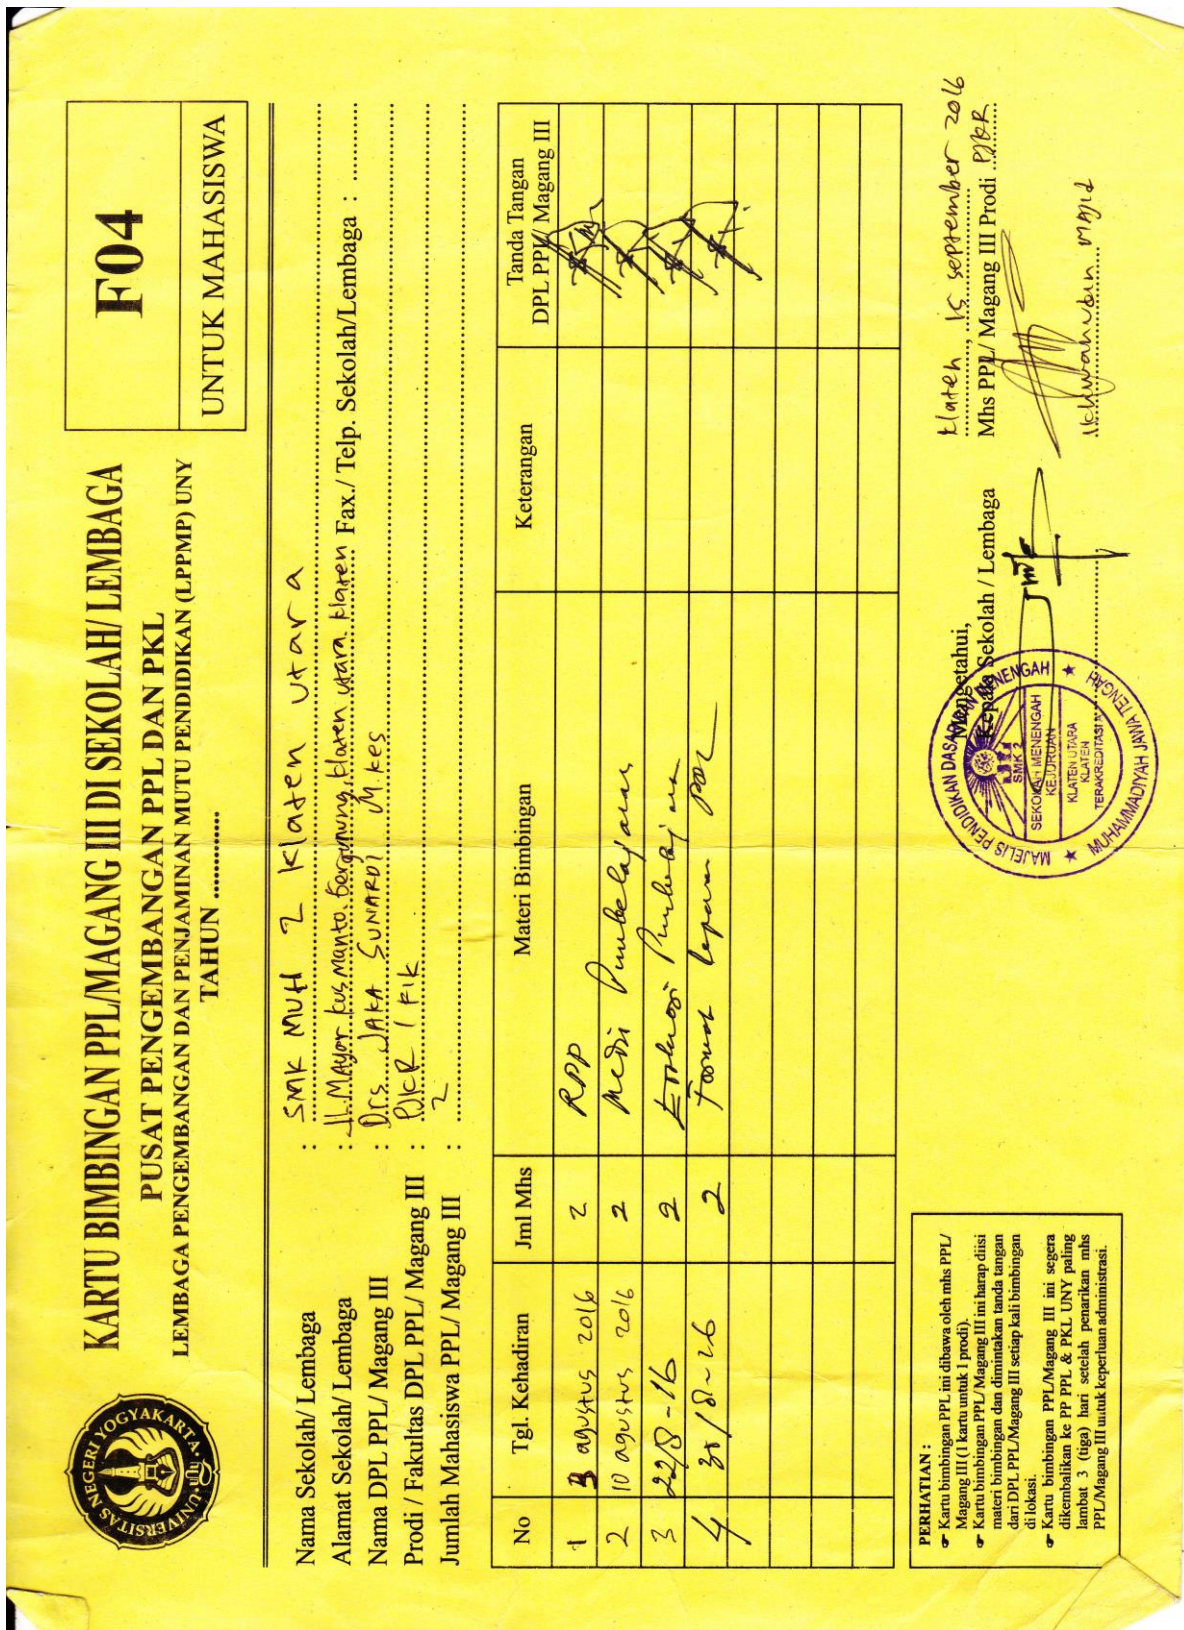 UNIVERSITAS NEGERI YOGYAKARTA
KARTU BIMBINGAN PPL/MAGANG III DI SEKOLAH/ LEMBAGA
PUSAT PENGEMBANGAN PPL DAN PKL
LEMBAGA PENGEMBANGAN DAN PENJAMINAN MUTU PENDIDIKAN (LPPMP) UNY
TAHUN ..............
F04
UNTUK MAHASISWA
Nama Sekolah/ Lembaga : SMK MUH 2 Klaten Utara
Alamat Sekolah/ Lembaga : Jl. Mayor kusmanto, Gergunung, klaten utara klaten Fax./ Telp. Sekolah/Lembaga : ............
Nama DPL PPL/ Magang III : Drs. JAKA SUNARDI M.kes
Prodi / Fakultas DPL PPL/ Magang III : PJKR / FIK
Jumlah Mahasiswa PPL/ Magang III : 2
No Tgl. Kehadiran Jml Mhs Materi Bimbingan Keterangan Tanda Tangan DPL PPL/ Magang III
1 agustus 2016 2 RPP
2 10 agustus 2016 2 Media Pembelajaran
3 22/8-16 2 Evaluasi Pembelajaran
4 30/8-16 2 Format laporan PPL
PERHATIAN :
☞ Kartu bimbingan PPL ini dibawa oleh mhs PPL/
Magang III (1 kartu untuk 1 prodi).
☞ Kartu bimbingan PPL/Magang III ini harap diisi
materi bimbingan dan dimintakan tanda tangan
dari DPL PPL/Magang III setiap kali bimbingan
di lokasi.
☞ Kartu bimbingan PPL/Magang III ini segera
dikembalikan ke PP PPL & PKL UNY paling
lambat 3 (tiga) hari setelah penarikan mhs
PPL/Magang III untuk keperluan administrasi.
Mengetahui,
Kepala Sekolah / Lembaga
MAJELIS PENDIDIKAN DASAR DAN MENENGAH
SMK 2
SEKOLAH MENENGAH
KEJURUAN
KLATEN UTARA
KLATEN
TERAKREDITASI A
MUHAMMADIYAH JAWA TENGAH
klaten, 15 september 2016
Mhs PPL/ Magang III Prodi PJKR
Ikhwanudin Majid